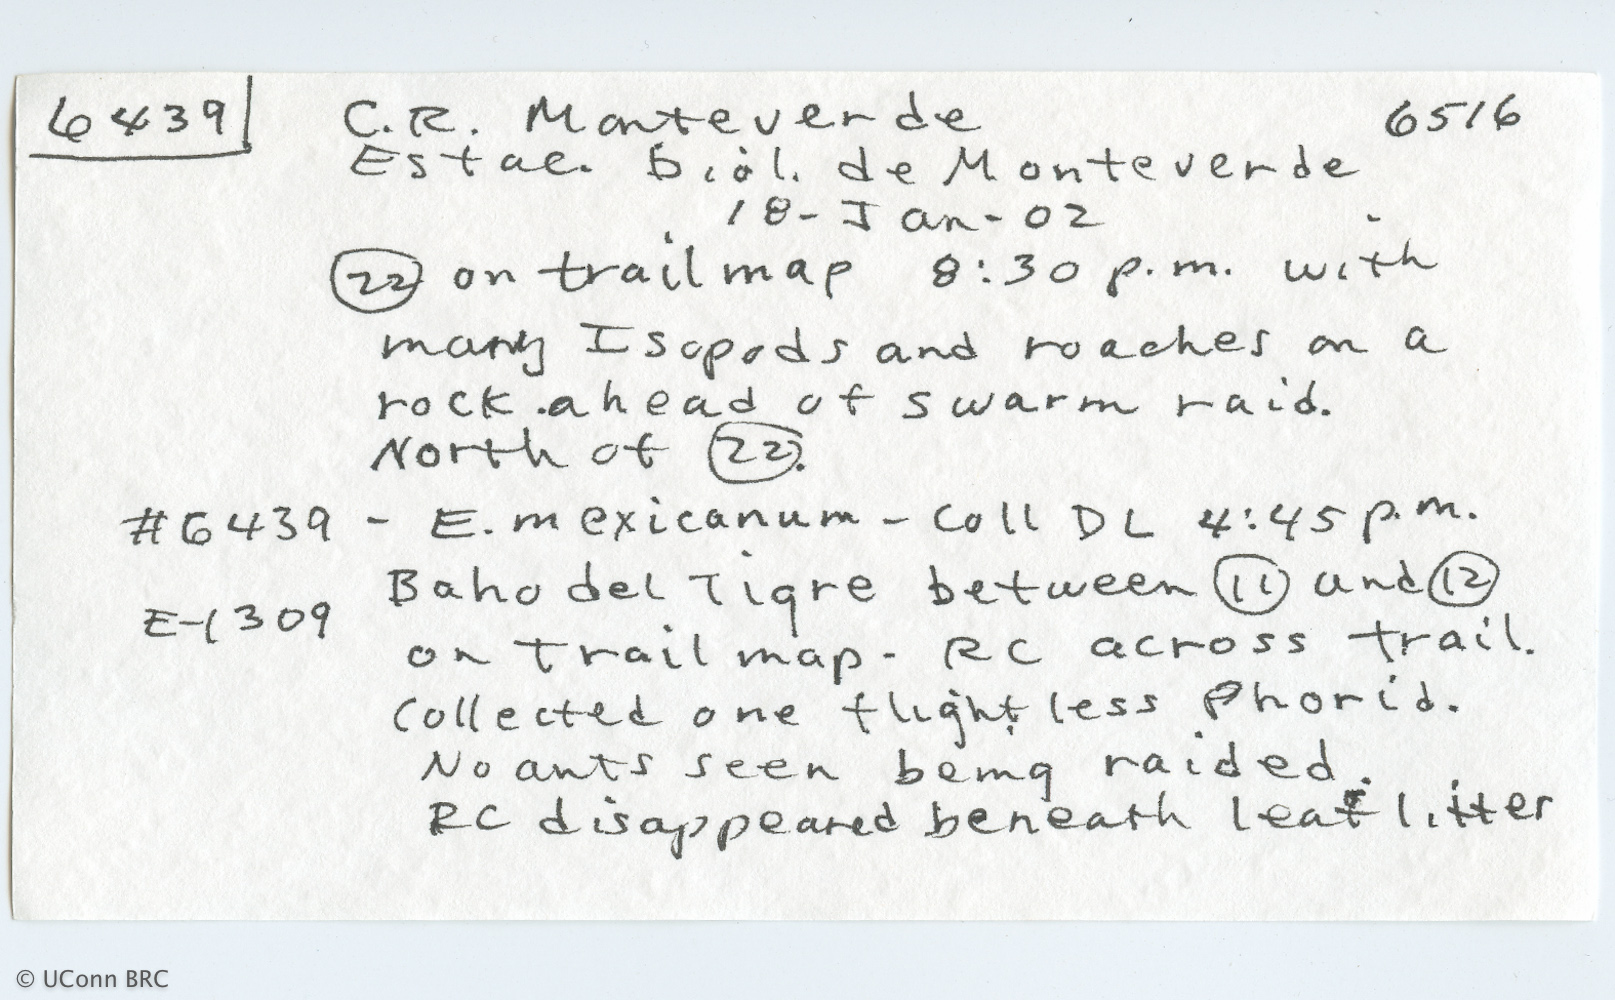 6439 C.R. Monteverde 6516
Estac. biol. de Monteverde
18-Jan-02
22 on trail map 8:30 p.m. with
many Isopods and roaches on a
rock ahead of swarm raid.
North of 22.
#6439 - E. mexicanum - Coll DL 4:45 p.m.
Baho del Tigre between 11 and 12
E-1309
on trail map - RC across trail.
Collected one flightless Phorid.
No ants seen being raided.
RC disappeared beneath leaf litter
© UConn BRC